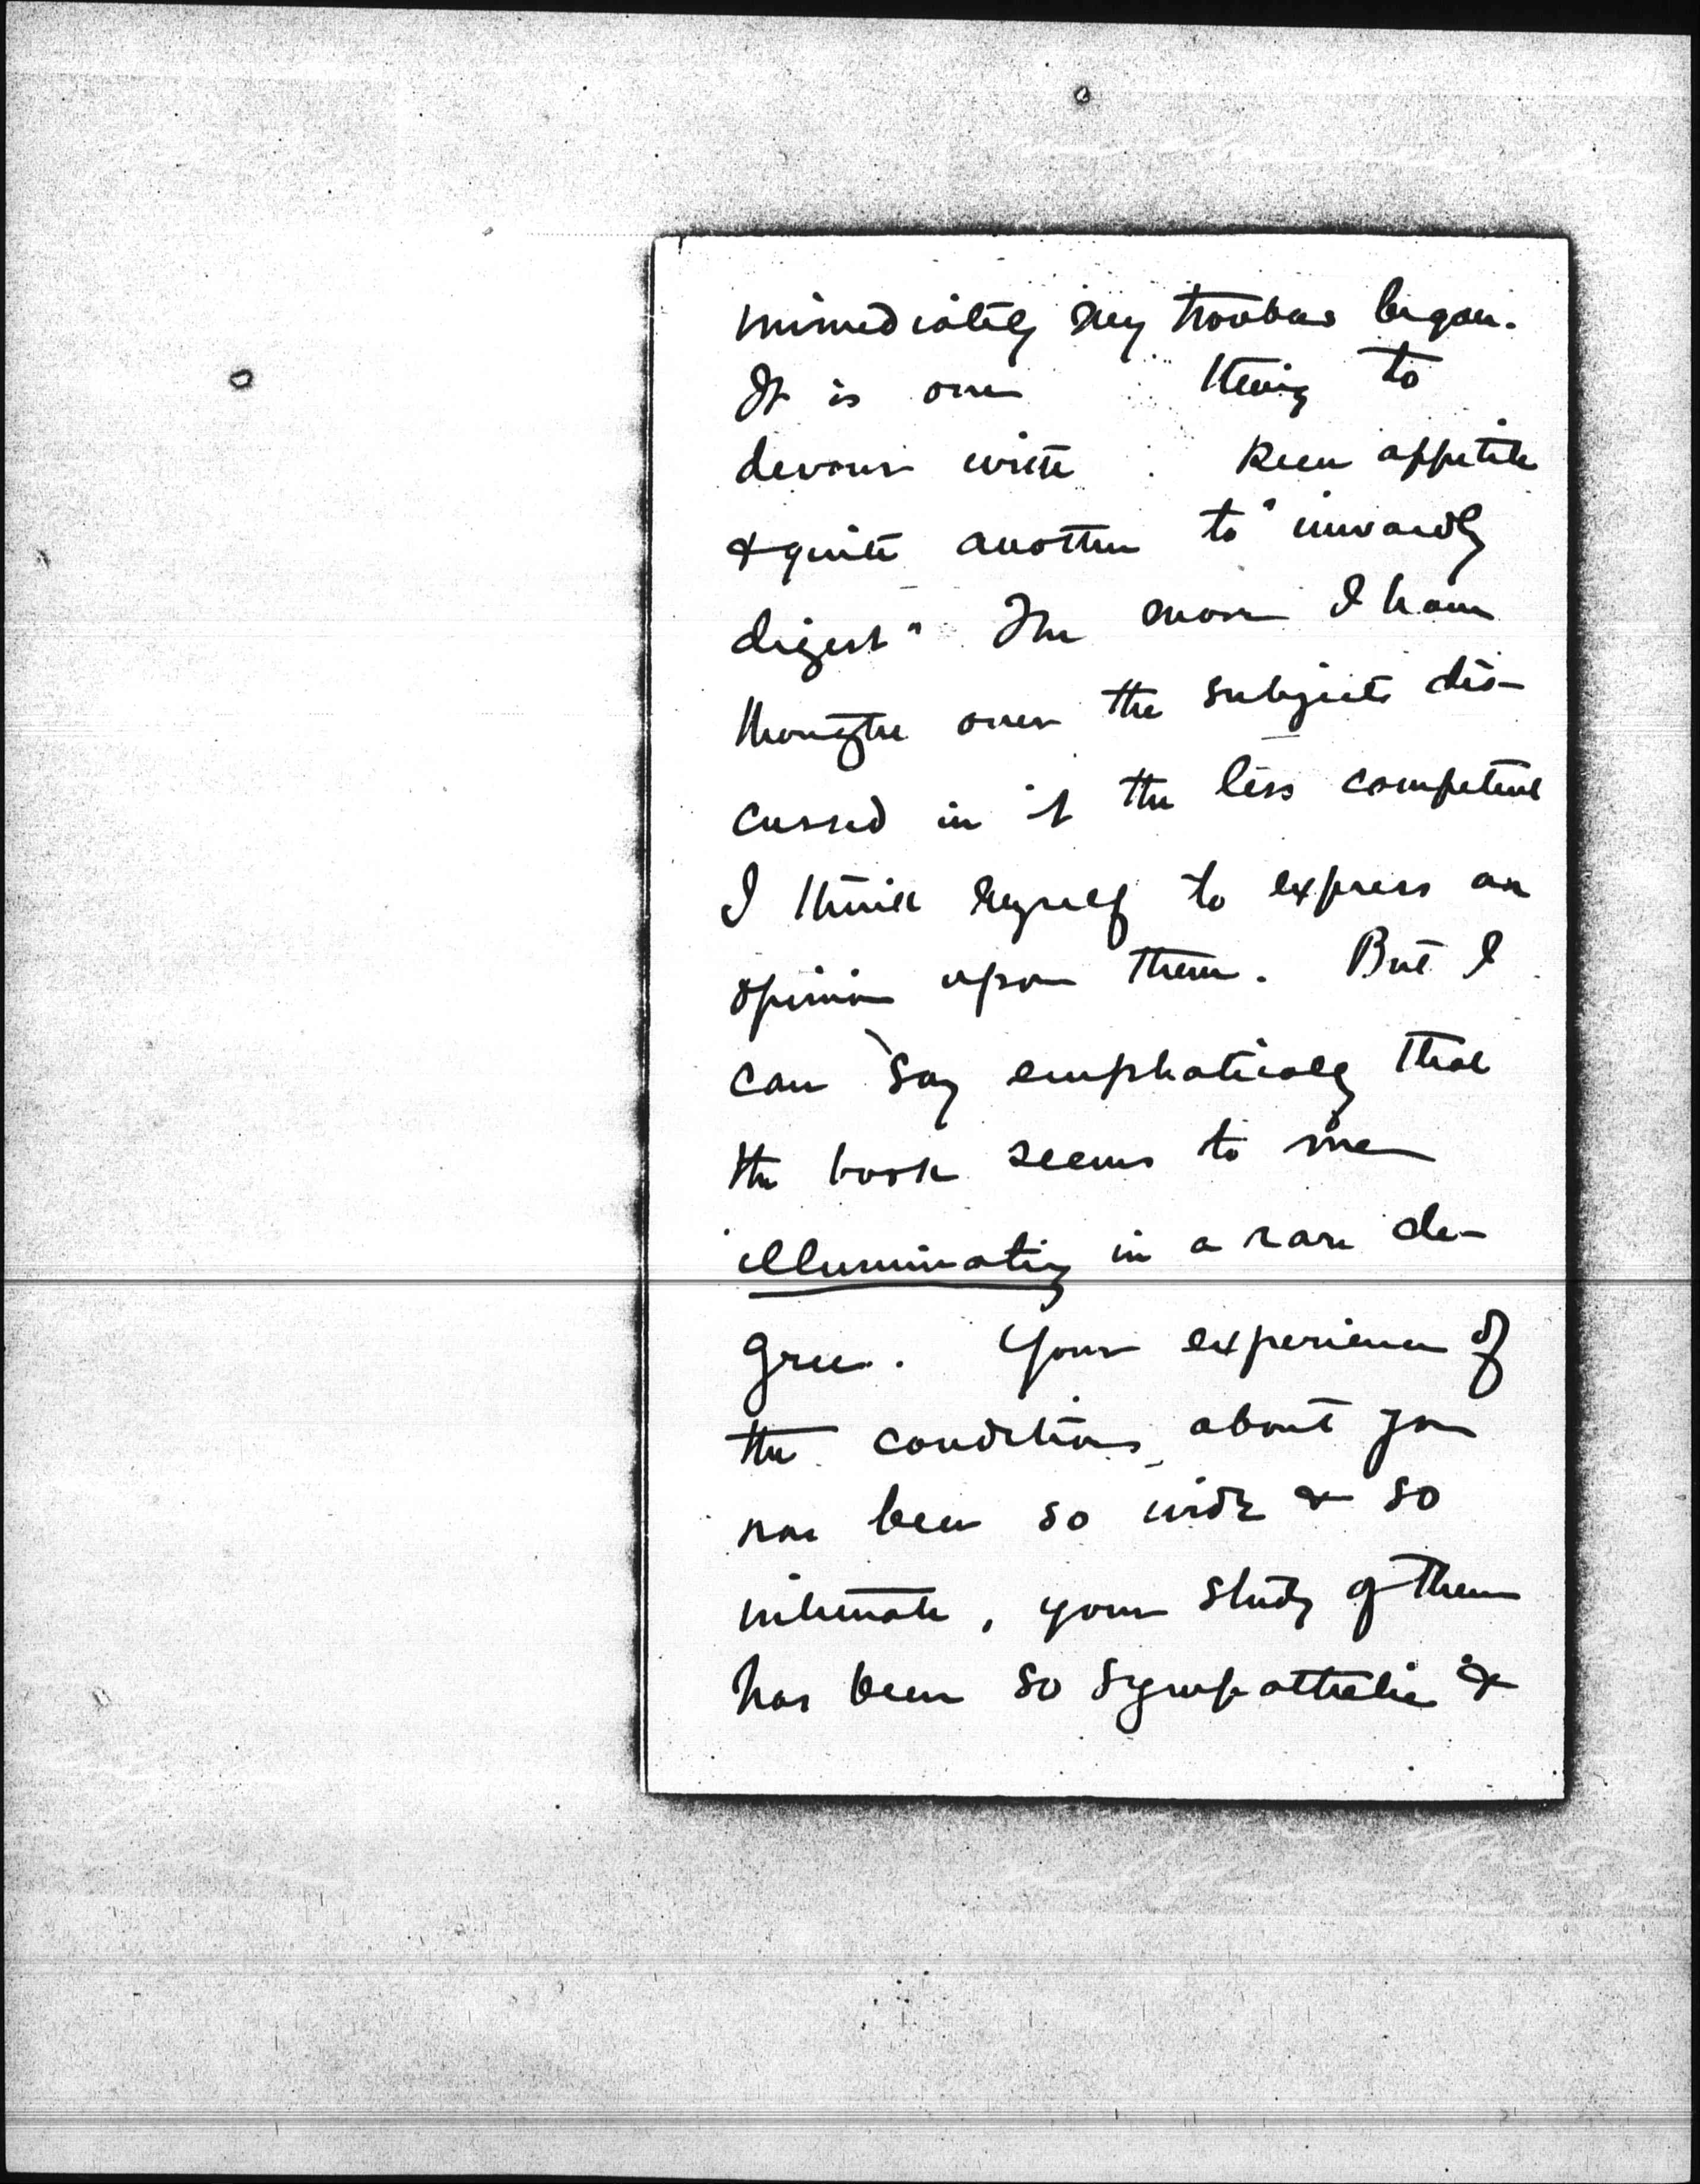 immediately my troubles began.
It is one thing to
devour with keen appetite
& quite another to "inwardly
digest" The more I have
thought over the subjects dis-
cussed in it the less competent
I think myself to express an
opinion upon them. But I
can say emphatically that
the book seems to me
illuminating in a rare de-
gree. Your experience of
the conditions about you
has been so wide & so
intimate, your study of them
has been so sympathetic &